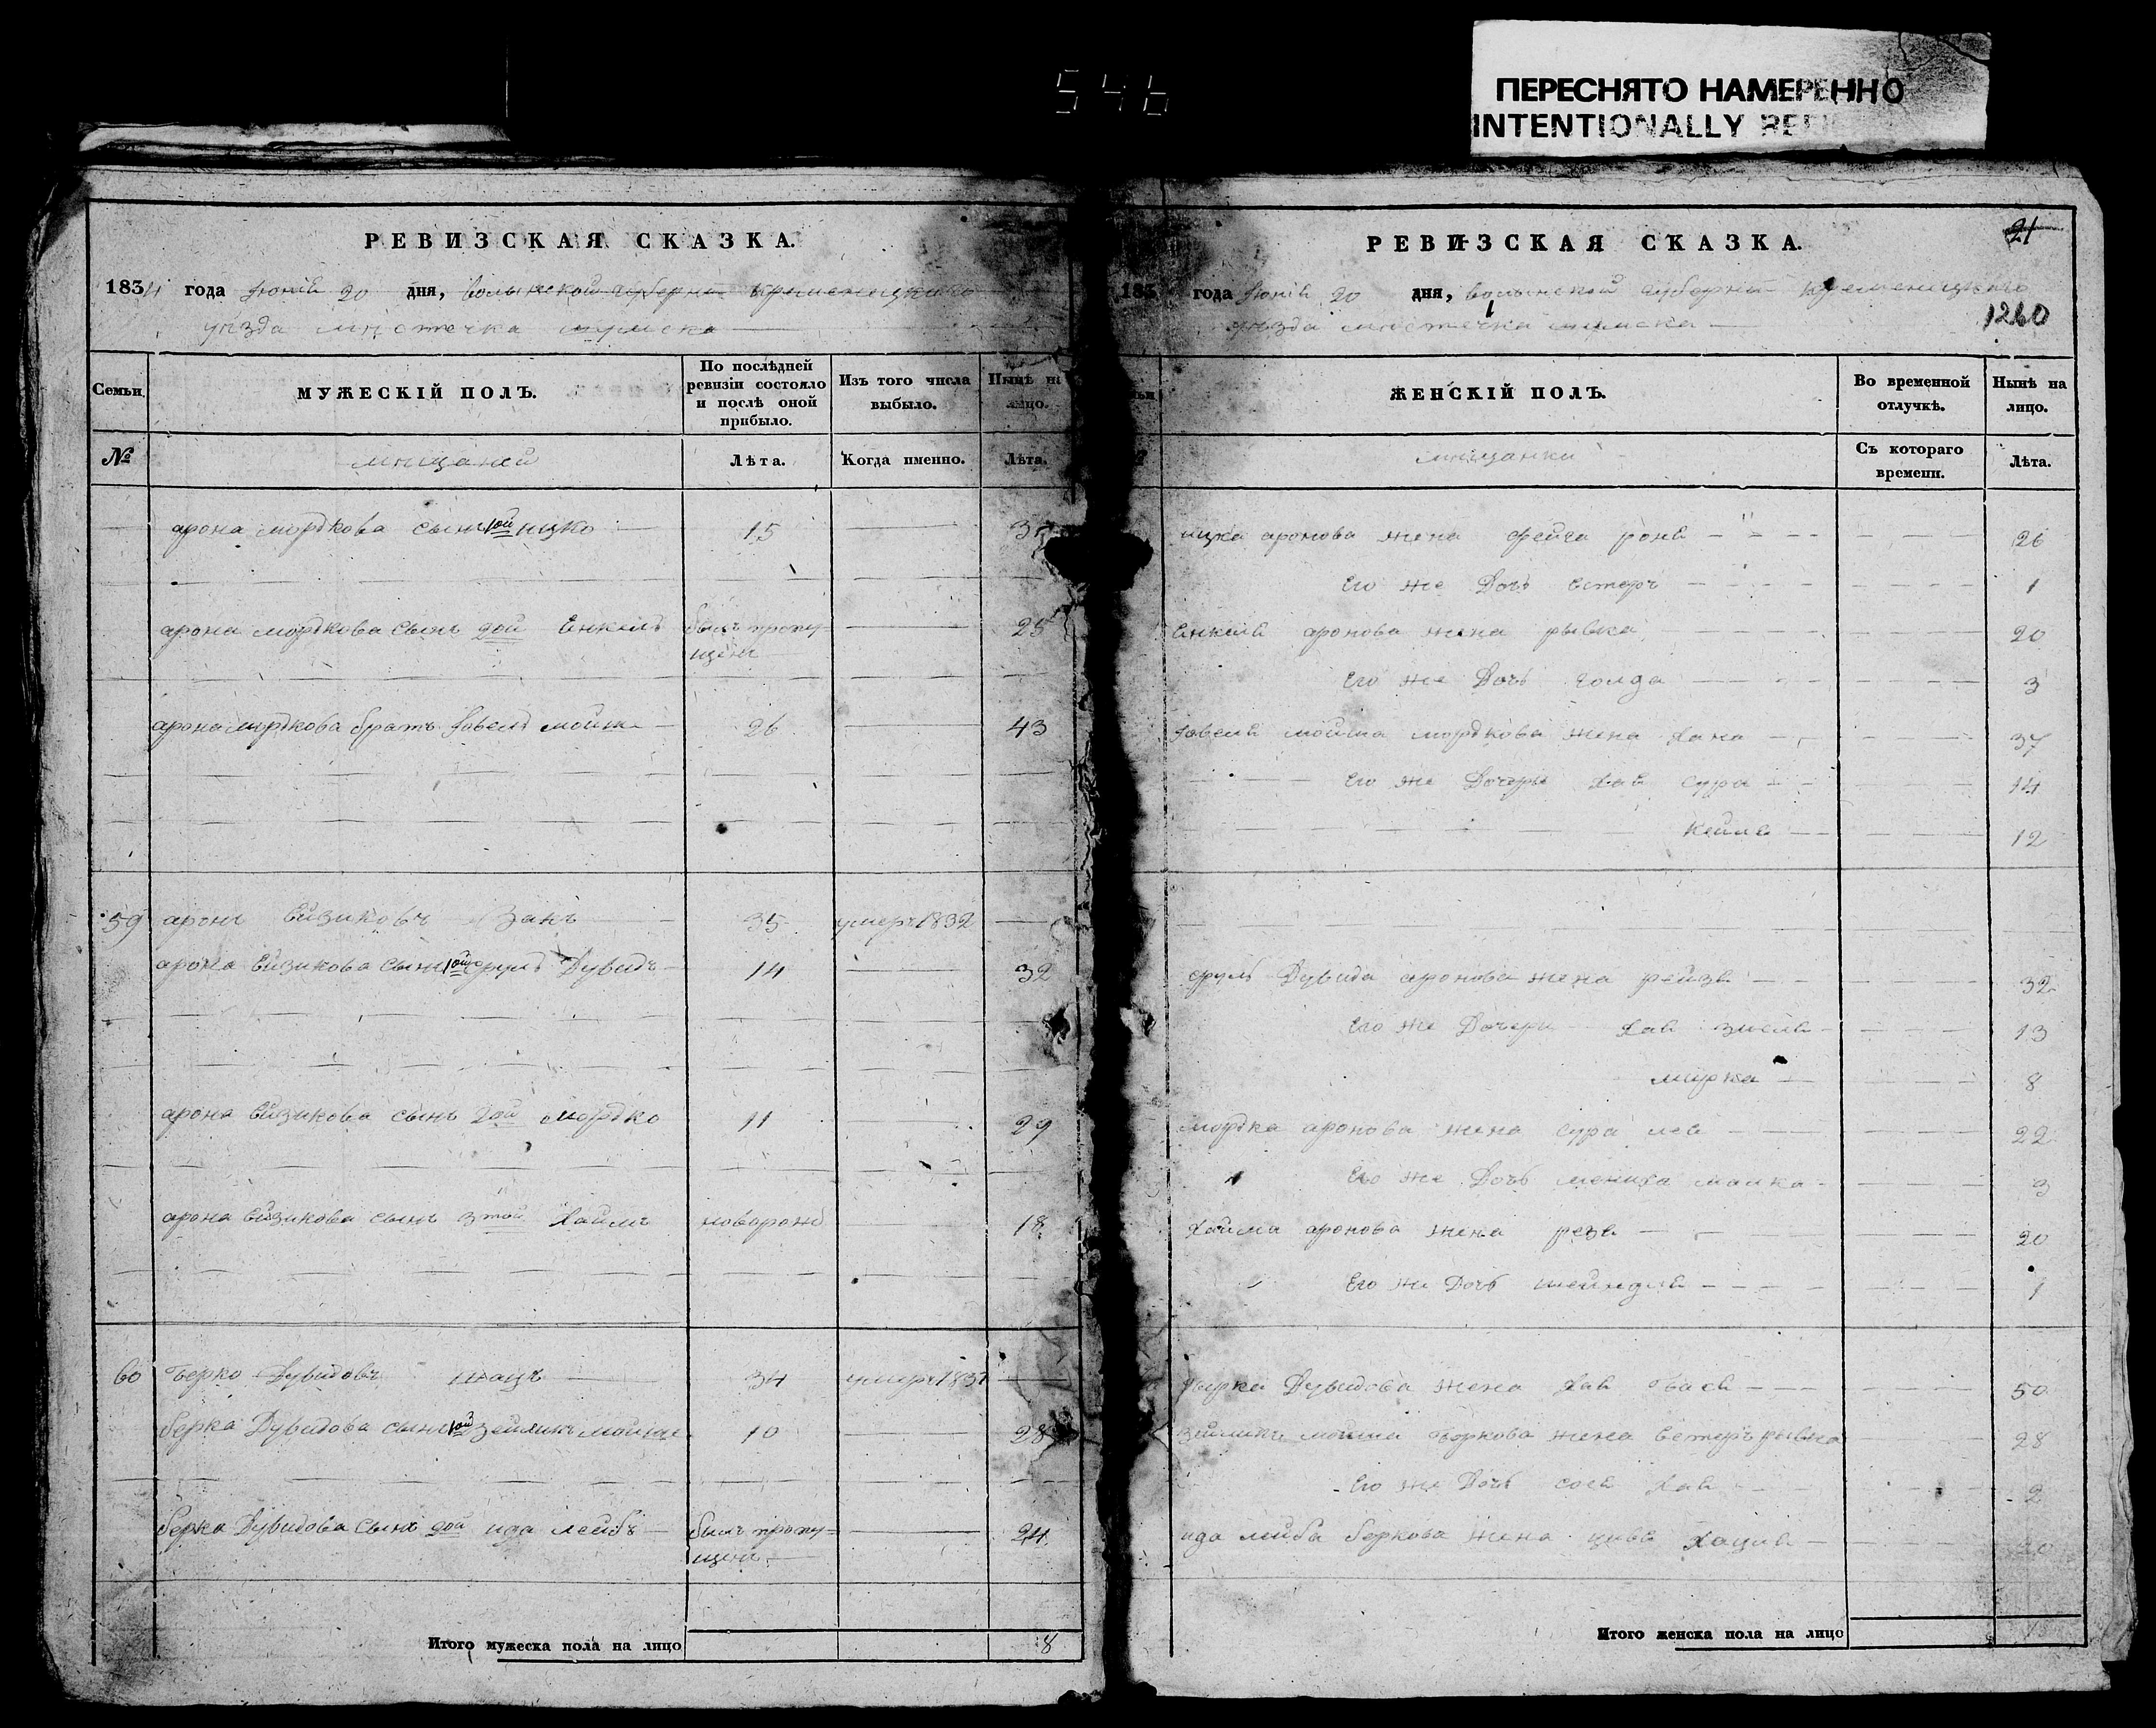 546
ПЕРЕСНЯТО НАМЕРЕННО
INTENTIONALLY
РЕВИЗСКАЯ СКАЗКА.
1834 года Июня 20 дня, Волынской губерни Кременецкаго
уѣзда мѣстечка шумска
Семьи. МУЖЕСКІЙ ПОЛЪ. По послѣдней ревизіи состояло и послѣ оной прибыло. Изъ того числа выбыло. Нынѣ на лицо.
№ мѣщаней Лѣта. Когда именно. Лѣта.
арона мордкова сынъ 1ой ицко 15
арона мордкова сынъ 2ой Енкель былъ пропу- 25
щенъ
арона мордкова братъ Іовель мойше 26 43
59 аронъ Ейзиковъ Закъ 35 умеръ 1832
арона Ейзикова сынъ 1ой сруль Дувидъ 14 32
арона Ейзикова сынъ 2ой мордко 11 29
арона Ейзикова сынъ 3той Хаимъ новорожд 18
60 Берко Дувидовъ шацъ 34 умеръ 1831
берка Дувидова сынъ 1ой Зейликъ мойше 10 28
берка Дувидова сынъ 2ой ида лейбъ былъ пропу= 24
щенъ
Итого мужеска пола на лицо 8
РЕВИЗСКАЯ СКАЗКА.
21
183 года Июня 20 дня, Волынской губерни Кременецкаго
уѣзда мѣстечка шумска
1260
ЖЕНСКІЙ ПОЛЪ. Во временной отлучкѣ. Нынѣ на лицо.
мѣщанки Съ котораго времени. Лѣта.
ицка аронова жена фейга роня 26
Его же Дочь Естеръ 1
Енкеля аронова жена рывка 20
Его же Дочь голда 3
Іовеля мойша мордкова жена Хана 37
Его же Дочери Хая сура 14
Кейля 12
сруль Дувида аронова жена рейзя 32
Его же Дочери Хая зисля 13
мирка 8
мордка аронова жена сура лея 22
Его же Дочь малка 3
Хаима аронова жена резя 20
Его же Дочь шейндля 1
Дувидова жена Хая бася 50
Зейликъ мойши беркова жена Естеръ рывка 28
Его же Дочь сося Хая 2
ида лейба беркова жена цивя 20
Итого женска пола на лицо